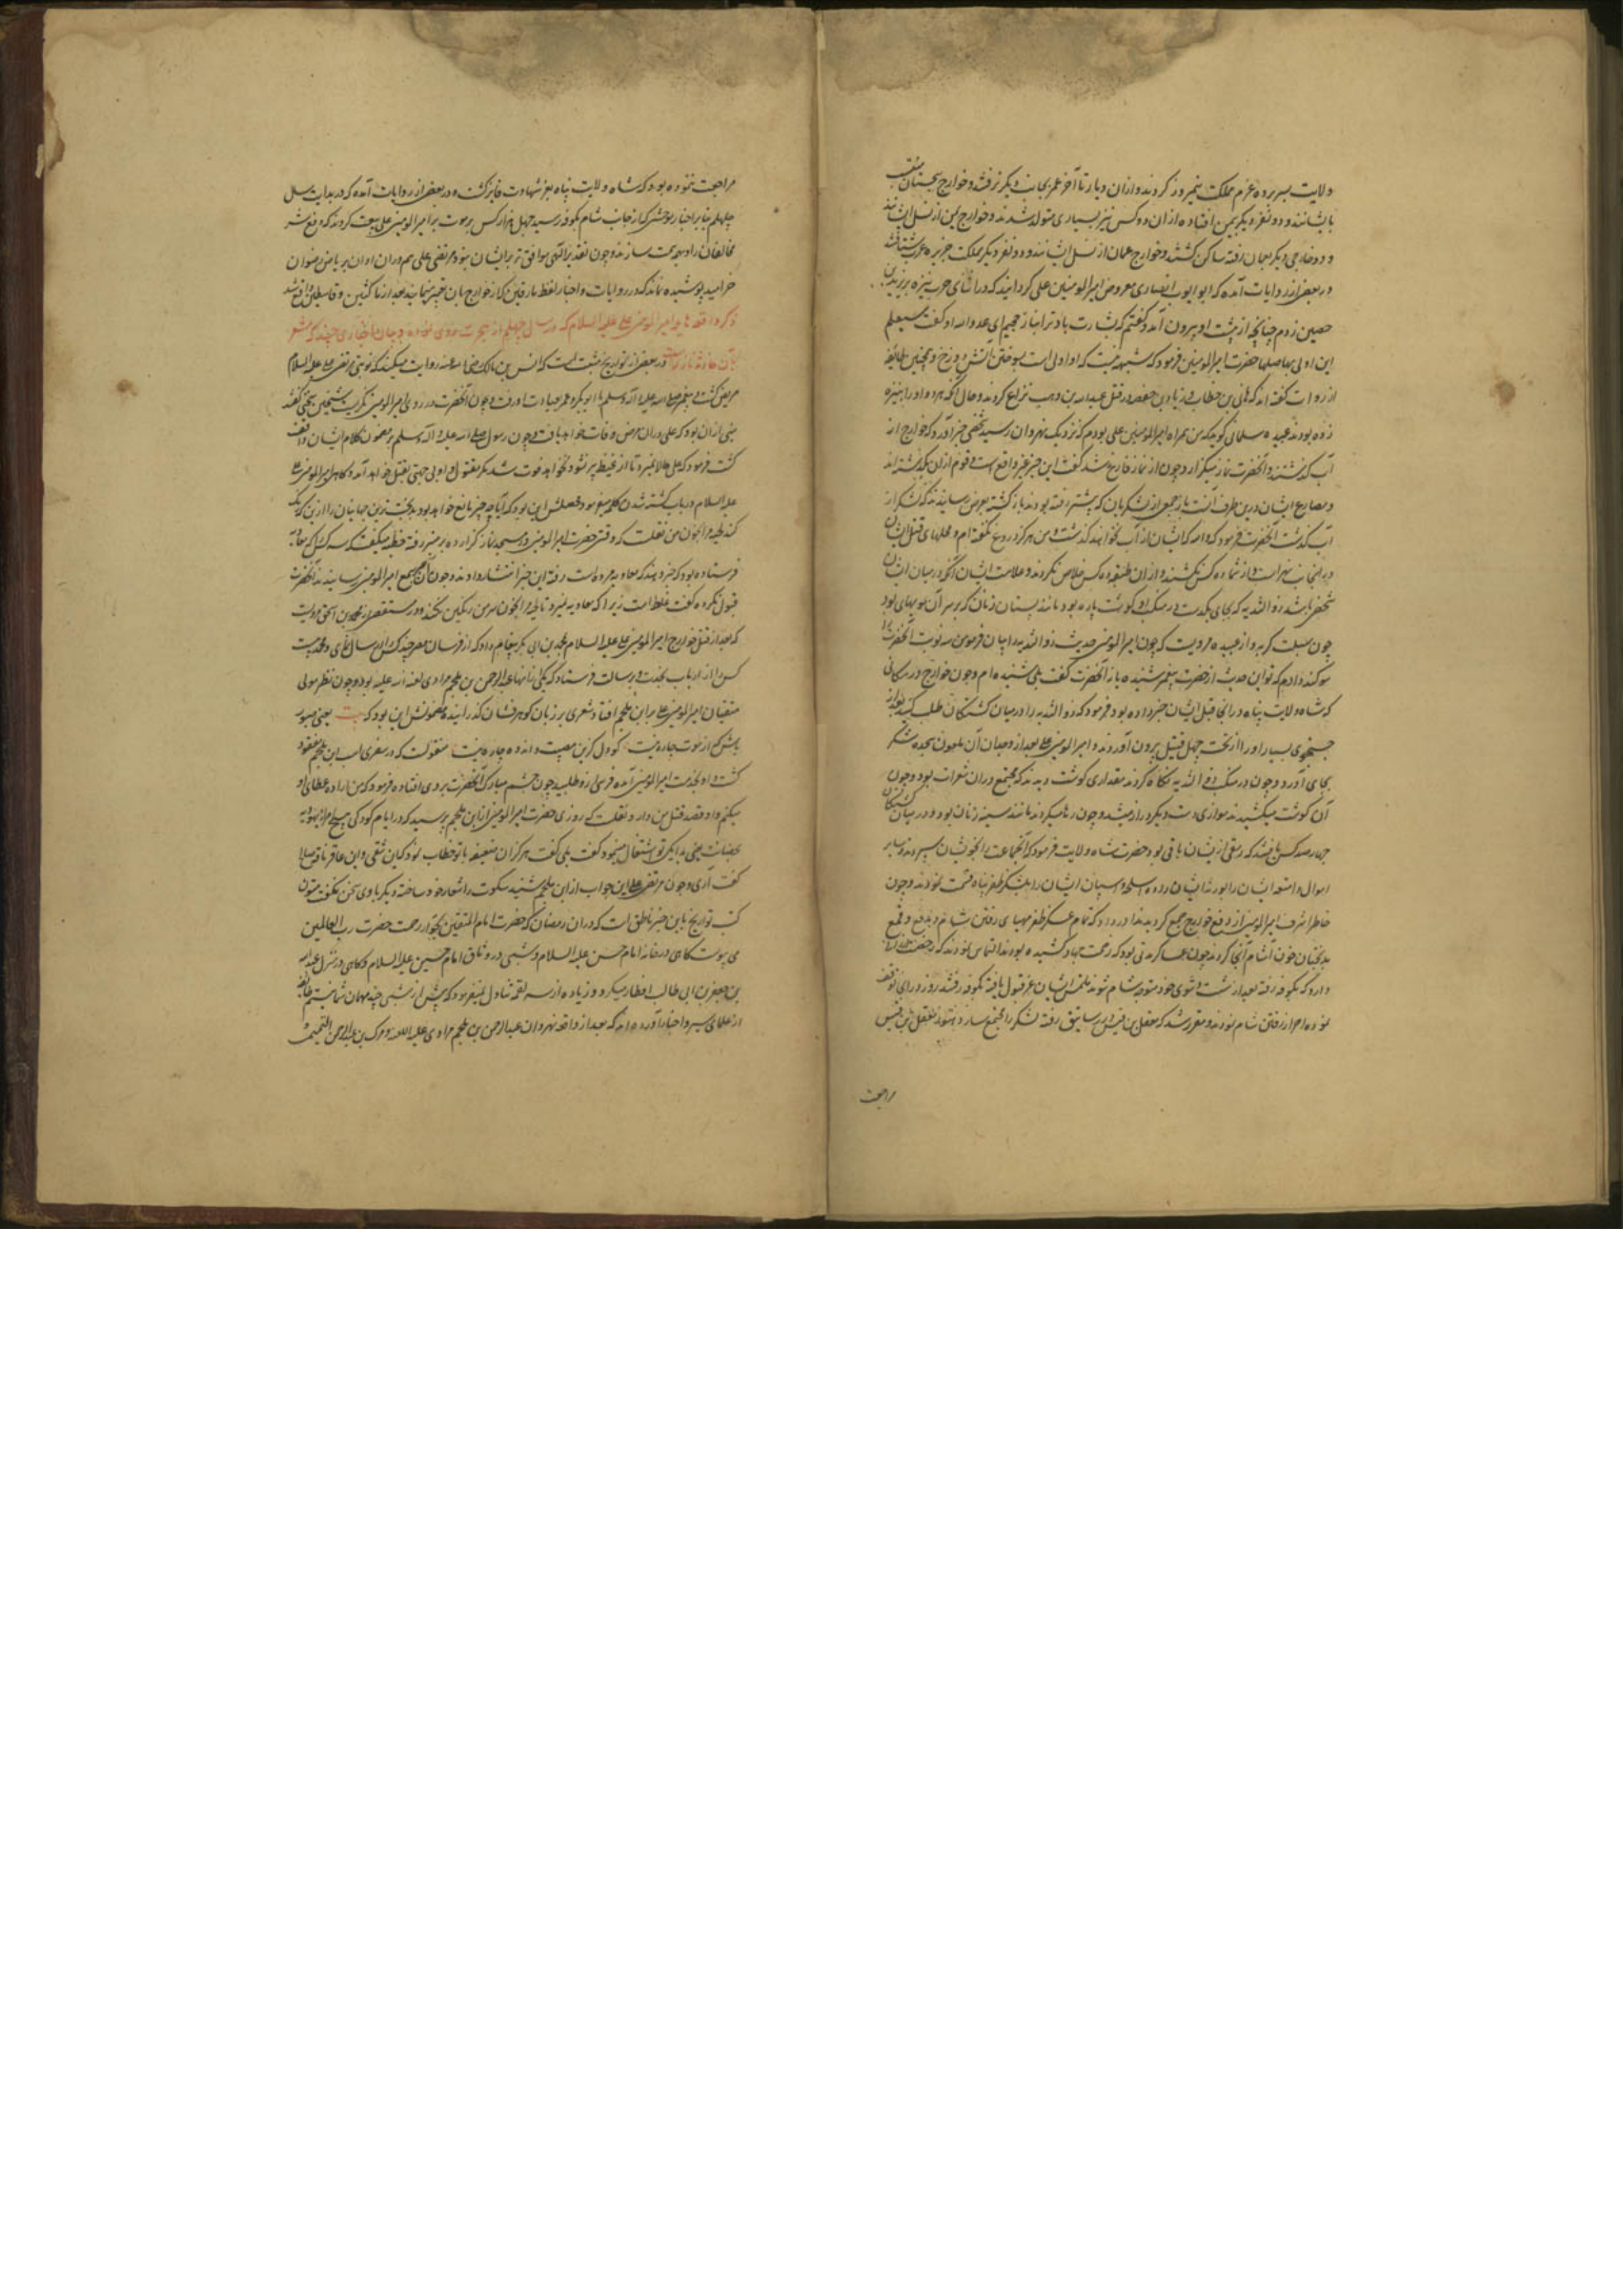 ولایت بسر برده عزم مملکت نیمروز کردند و ازان دیار تا آخر عمر بجانب دیگر نرفتند و خوارج سجستان منسوب
بایشانند و دو نفر دیگر بیمن افتاده ازان دو کس نیز بسیاری متولد شدند و خوارج یمن از نسل ایشانند
و دو خارجی دیگر بعمان رفته ساکن کشتند و خوارج عمان از نسل ایشانند و دو نفر دیگر بمملکت جزیره عرب شتافتند
در بعضی از روایات آمده که ابو ایوب انصاری معروض امیرالمومنین علی کردانید که در اثنای حرب نیزه بر زید بن
حصین زدم چنانچه از پشت او بیرون آمد و کفتم که بشارت باد ترا بنار جحیم ای عدو الله او کفت سیعلم
این اولی بها صلیا حضرت امیرالمومنین فرمود که شبهه نیست که او اولی است بسوختن آتش دوزخ و همچنین طایفه
از روات کفته اند که هانی بن خطاب و زیاد بن خصفه در قتل عبدالله بن وهب نزاع کردند و حال آنکه هر دو او را نیزه
زده بودند عبیده سلمانی کوید که من همراه امیرالمومنین علی بودم که نزدیک نهروان رسید شخصی خبر آورد که خوارج از
آب کذشتند و آنحضرت نماز میکزارد و چون از نماز فارغ شد کفت این خبر غیر واقع است و قوم ازان نکذشته اند
و مصارع ایشان درین طرف آبست باز جمعی از لشکریان که پیشتر رفته بودند باز کشته بعرض رسانیدند که لشکر از
آب کذشت آنحضرت فرمود که والله که ایشان از آب نخواهند کذشت و من هرکز دروغ نکفته ام و محلهای قتل ایشان
درینجانب نهر است و از شما ده کس نکشند و ازان طبقه ده کس خلاص نکردند و علامت ایشان آنکه در میان ایشان
شخصی باشد ذو الثدیه که بجای یکدست در منکب او کوشت پاره بود مانند پستان زنان که بر سر آن مویهای بود
چون سبلت کربه و از عبیده مرویست که چون امیرالمومنین حدیث ذو الثدیه را بیان فرمود من سه نوبت آنحضرت را
سوکند دادم که تو این حدیث از حضرت پیغمبر شنیده باز آنحضرت کفت بلی شنیده ام و چون خوارج در مکانی
که شاه ولایت پناه در انجا قتل ایشان خبر داده بود فرمود که ذو الثدیه را در میان کشتکان طلب کنید بعد از
جستجوی بسیار او را از تحت چهل قتیل بیرون آوردند و امیرالمومنین علی بعد از وجدان آن ملعون سجده شکر
بجای آورد و چون در منکب ذو الثدیه نکاه کردند مقداری کوشت دیدند که مجتمع دران شعرات بود و چون
آن کوشت میکشیدند موازی دست دیکر دراز میشد و چون رها میکردند مانند سینه زنان بود و در میان کشتکان
چهارصد کس یافتند که رمقی ازیشان باقی بود حضرت شاه ولایت فرمود که آنجماعت را بخویشان سپردند و سایر
اموال و امتعه ایشان را بورثه ایشان داده اسلحه و اسپان ایشان را بلشکر ظفر پناه قسمت نمودند و چون
خاطر اشرف امیرالمومنین از دفع خوارج جمع کردید ندا در داد که تمام عسکر ظفر مهیای رفتن شام و بدفع و قمع
بدبختان خون آشام آنجا کردند چون عساکر مدتی بود که زحمت جهاد کشیده بودند التماس نمودند که رخصت
دارد که بکوفه رفته بعد از شست و شوی خود متوجه شام شوند ملتمس ایشان عز قبول یافته بکوفه رفتند روزی در آن توقف
نموده احراز رفتن شام نمودند و مقرر شد که معقل بن قیس در رساتیق رفته لشکر را مجتمع سازد هنوز معقل بن قیس
مراجعت
مراجعت ننموده بود که شاه ولایت پناه بعز شهادت فایز کشت و در بعضی از روایات آمده که در بدایت سال
چهلم بنا بر اخبار موحش که از جانب شام بکوفه رسید چهل هزار کس بر موت بر امیرالمومنین علی بیعت کردند که دفع شر
مخالفان را وجهه همت سازند و چون تقدیر الهی موافق تدبر ایشان نبود مرتضی علی هم دران اوان بریاض رضوان
خرامید پوشیده نماند که در روایات و اخبار لفظ مارقین که از خوارج بان تعبیر نمایند بعد از ناکثین و قاسطین واقع شد
ذکر واقعه هایله امیرالمومنین علی علیه السلام که در سال چهلم از هجرت روی نموده و بیان اخباری چند که مشعر
بآن حادثه نازله است در بعضی از تواریخ مثبت است که انس بن مالک رضی الله عنه روایت میکند که نوبتی مرتضی علی علیه السلام
مریض کشت و پیغمبر صلی الله علیه و آله وسلم با ابوبکر و عمر بعیادت او رفت و چون آنحضرت در روی امیرالمومنین نکریست شیخین بخفی کفتند
مبنی ازان بود که علی دران مرض وفات خواهد یافت و چون رسول صلی الله علیه و آله وسلم بر مضمون کلام ایشان واقف
کشت فرمود که علی حالا نمیرد تا از غیظ پر نشود و نخواهد فوت شد مکر مقتول و او بی جهتی بقتل خواهد آمد و کاهی امیرالمومنین علی
علیه السلام در باب کشته شدن کلمه میفرمود که حاصلش این بود که آیا چه چیز مانع خواهد بود بدبخت ترین جهانیان را ازین که رنک
کند لحیه مرا بخون من نقلست که وقتی حضرت امیرالمومنین در مسجد نماز کزارده بر منبر رفته خطبه میکفت که سه کس که معاویه
فرستاده بود که خبر دهند که معاویه مرده است رفته این خبر انتشار دادند و چون آن بسمع امیرالمومنین رسانیدند آنحضرت
قبول نکرده کفت غلط است زیرا که معاویه نمیرد تا لحیه مرا بخون سر من رنکین نکند و در مستقصی از محمد بن اسحق مرویست
که بعد از قتل خوارج امیرالمومنین علی علیه السلام بمحمد بن ابی بکر پیغام داد که از فرسان مصر چند کس ارسال نمای و محمد بیست
کس را از ارباب نجدت و بسالت فرستاد که یکی زانها عبدالرحمن بن ملجم مرادی لعنه الله علیه بود و چون نظر مولی
متقیان امیرالمومنین علی بر ابن ملجم افتاد شعری بر زبان کوهرفشان کذرانید که مضمونش این بود که بیت یعنی صبور
باش که از موت چاره نیست کو دل کزین مصیبت و اندوه چاره نیست منقولست که در سفری اسب ابن ملجم مفقود
کشت و او بخدمت امیرالمومنین آمده فرسی ازو طلبید چون چشم مبارک آنحضرت بر وی افتاد فرمود که من اراده عطای او
میکنم و او قصد قتل من دارد نقلست که روزی حضرت امیرالمومنین از ابن ملجم پرسید که در ایام کودکی هیچ مرأه یهودیه
حضانت یعنی بدایکی تو اشتغال مینمود کفت بلی کفت هرکز آن ضعیفه با تو خطاب نمود کیان شقی و این عاقر ناقه صالح
کفت آری و چون مرتضی علی این جواب از ابن ملجم شنید سکوت را شعار خود ساخته دیکر با وی سخن نکفت متون
کتب تواریخ باین خبر ناطق است که دران رمضان که حضرت امام المتقین بجوار رحمت حضرت رب العالمین
می پیوست کاهی در خانه امام حسن علیه السلام و شبی در وثاق امام حسین علیه السلام و کاهی در منزل عبدالله
بن جعفر بن ابی طالب افطار میکرد و زیاده از سه لقمه تناول نمیفرمود که پیش از شبی چند مهمان شما نیستم طایفه
از علمای سیر و اخبار آورده اند که بعد از واقعه نهروان عبدالرحمن بن ملجم مرادی علیه اللعنه و برک بن عبدالرحمن التمیمی